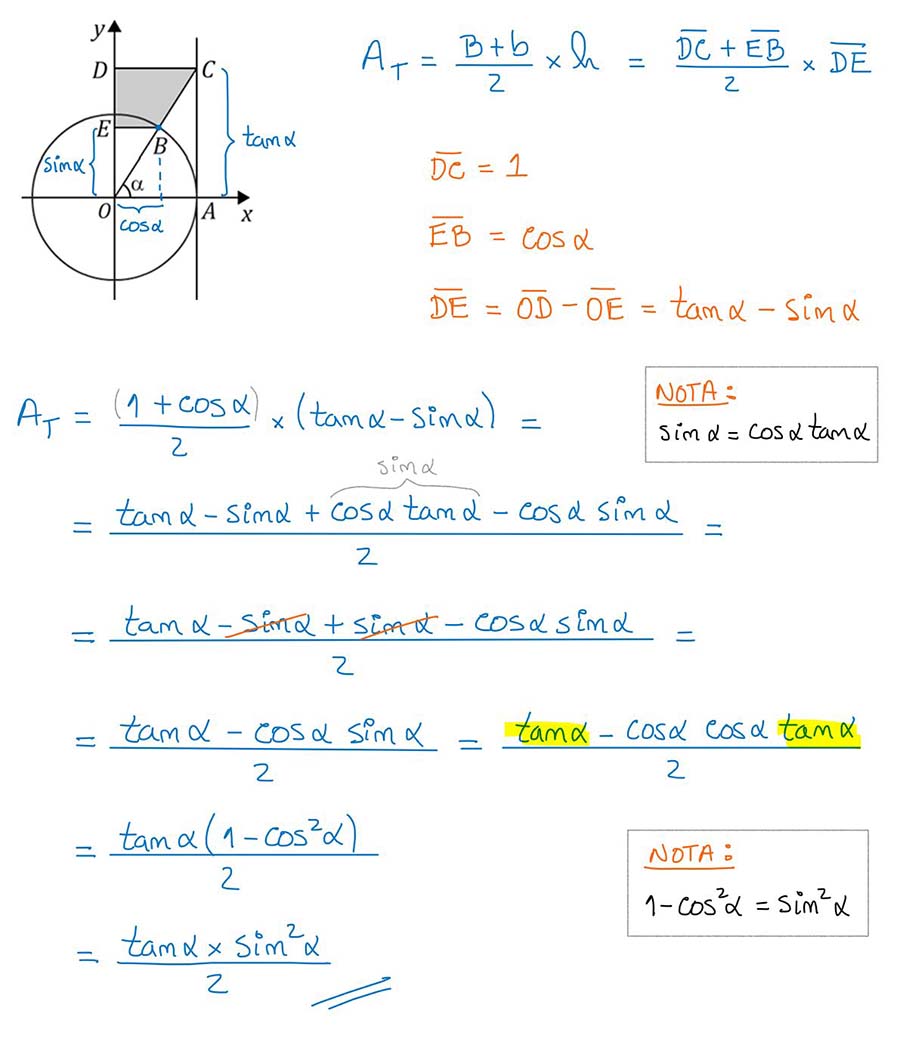 y
D C
E
B
sinα
tanα
α
O A x
cosα
A_T = (B+b)/2 × h = (D̅C̅ + E̅B̅)/2 × D̅E̅
D̅C̅ = 1
E̅B̅ = cosα
D̅E̅ = O̅D̅ − O̅E̅ = tanα − sinα
A_T = (1 + cosα)/2 × (tanα − sinα) =
NOTA:
sinα = cosα tanα
sinα
= (tanα − sinα + cosα tanα − cosα sinα)/2 =
= (tanα − sinα + sinα − cosα sinα)/2 =
= (tanα − cosα sinα)/2 = (tanα − cosα cosα tanα)/2
= tanα(1 − cos²α)/2
NOTA:
1 − cos²α = sin²α
= (tanα × sin²α)/2